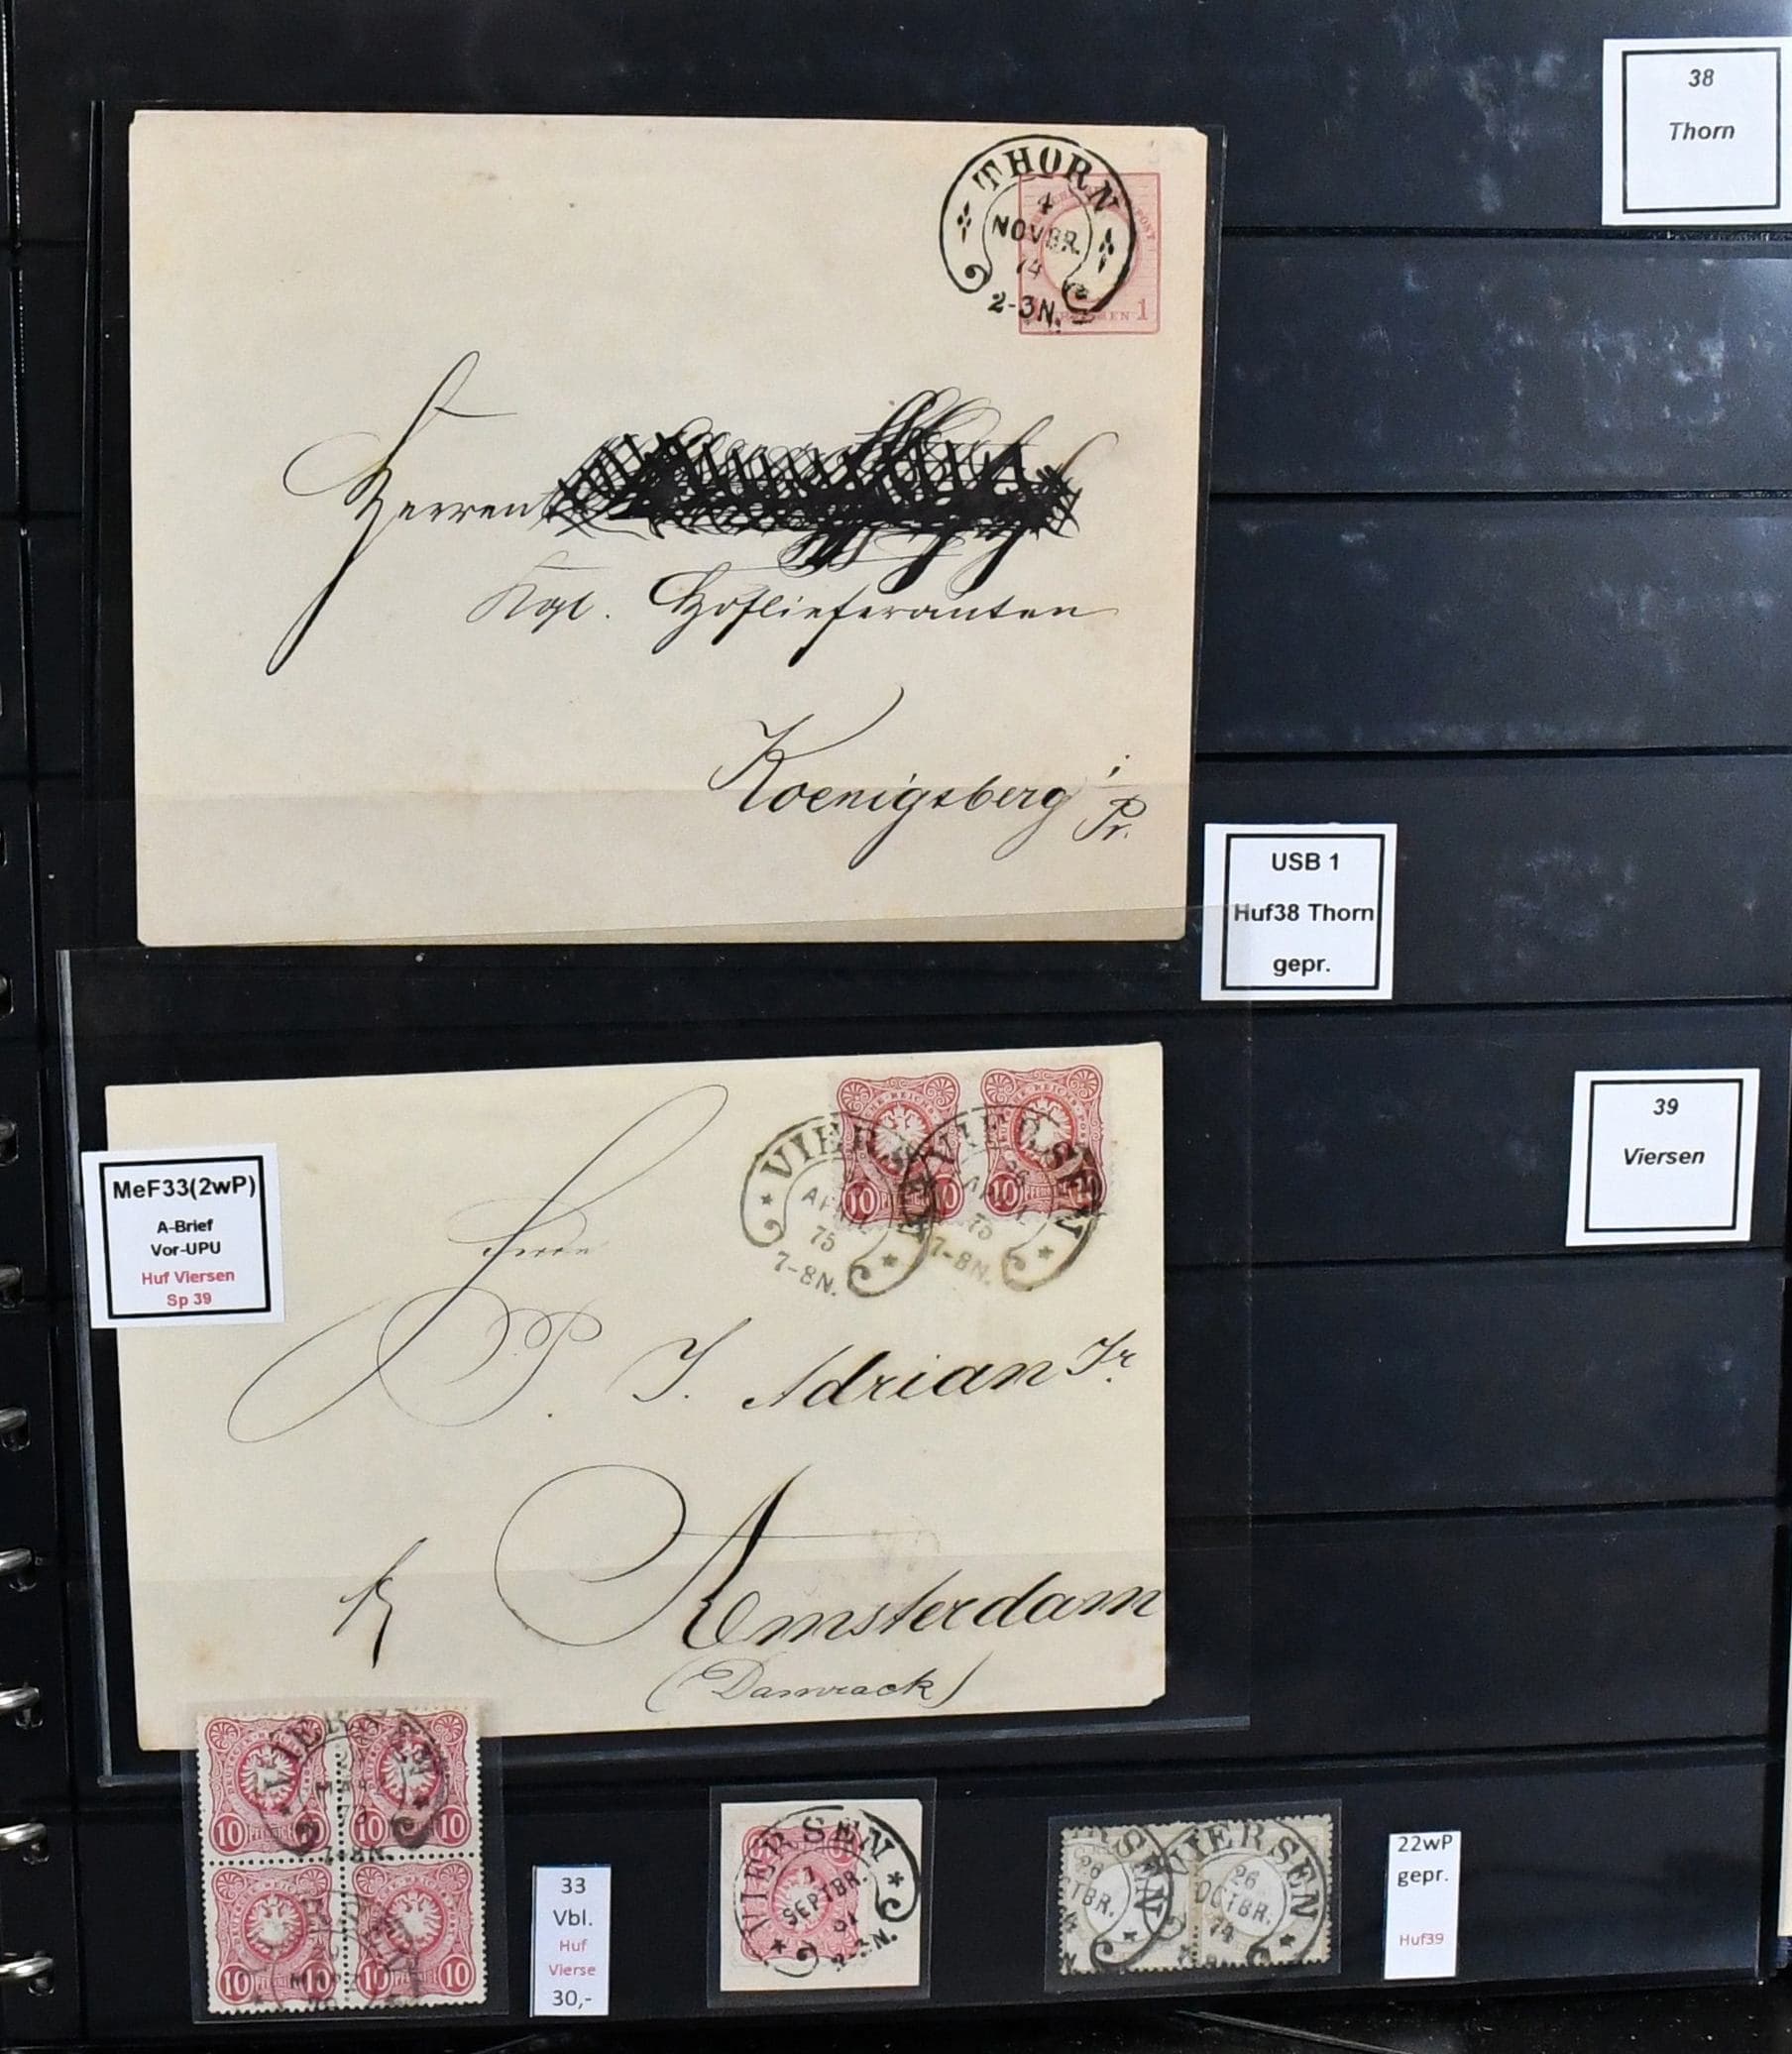 38
Thorn
THORN
4
NOVBR.
74
2-3N.
POST
1
Herren
Kgl. Hoflieferanten
Koenigsberg i/Pr.
USB 1
Huf38 Thorn
gepr.
39
Viersen
MeF33(2wP)
A-Brief
Vor-UPU
Huf Viersen
Sp 39
VIERSEN
APRIL
75
7-8N.
VIERSEN
75
7-8N.
10 10
10
Herrn
P. J. Adrian Jr.
Amsterdam
(Damrack)
10 10
10 10
10 10
10 10
33
Vbl.
Huf
Vierse
30,-
VIERSEN
1
SEPTBR.
81
2-3N.
RSEN
26
CTBR.
VIERSEN
26
OCTBR.
74
22wP
gepr.
Huf39